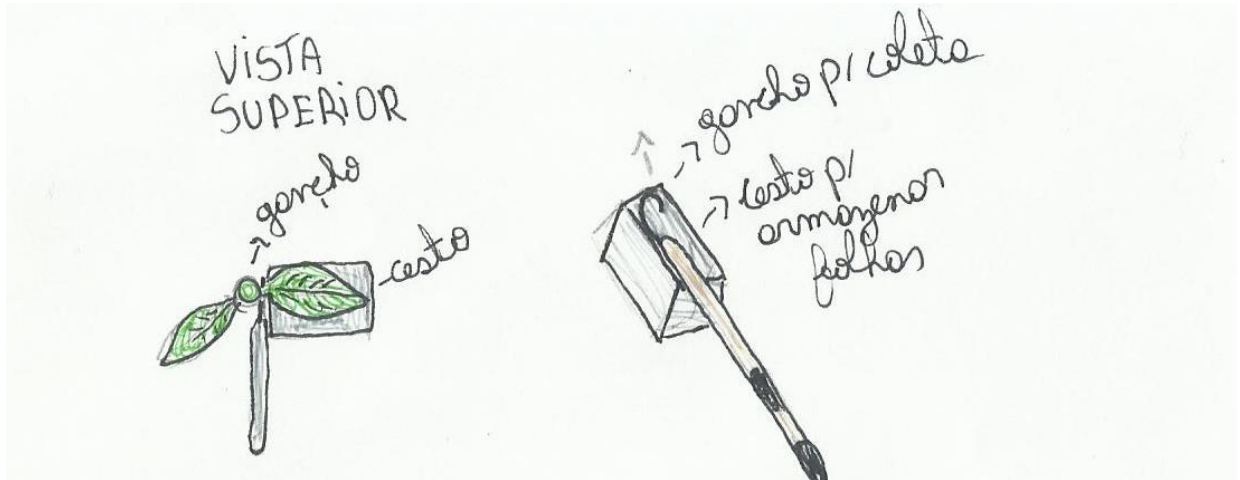 VISTA
SUPERIOR
gancho
cesto
gancho p/ coleta
cesto p/
armazenar
folhas